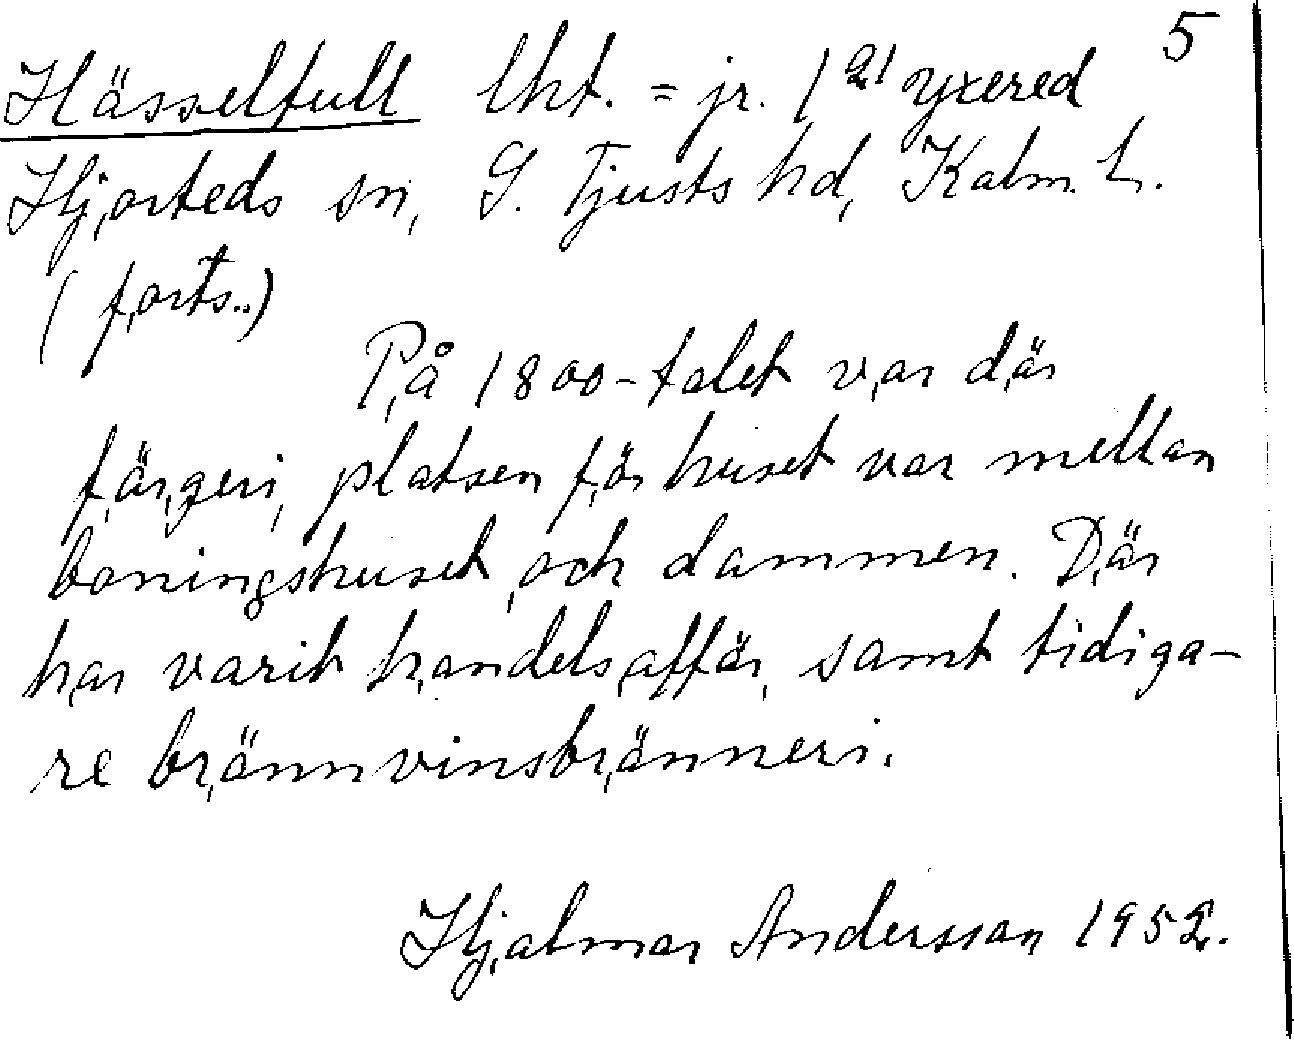 5
Hässelkull lht. = jr. 1²¹ Yxered
Hjorteds sn, S. Tjusts hd, Kalm. L.
(forts..)
På 1800-talet var där
färgeri, platsen för huset var mellan
boningshuset och dammen. Där
har varit handelsaffär, samt tidiga-
re brännvinsbränneri.
Hjalmar Andersson 1952.